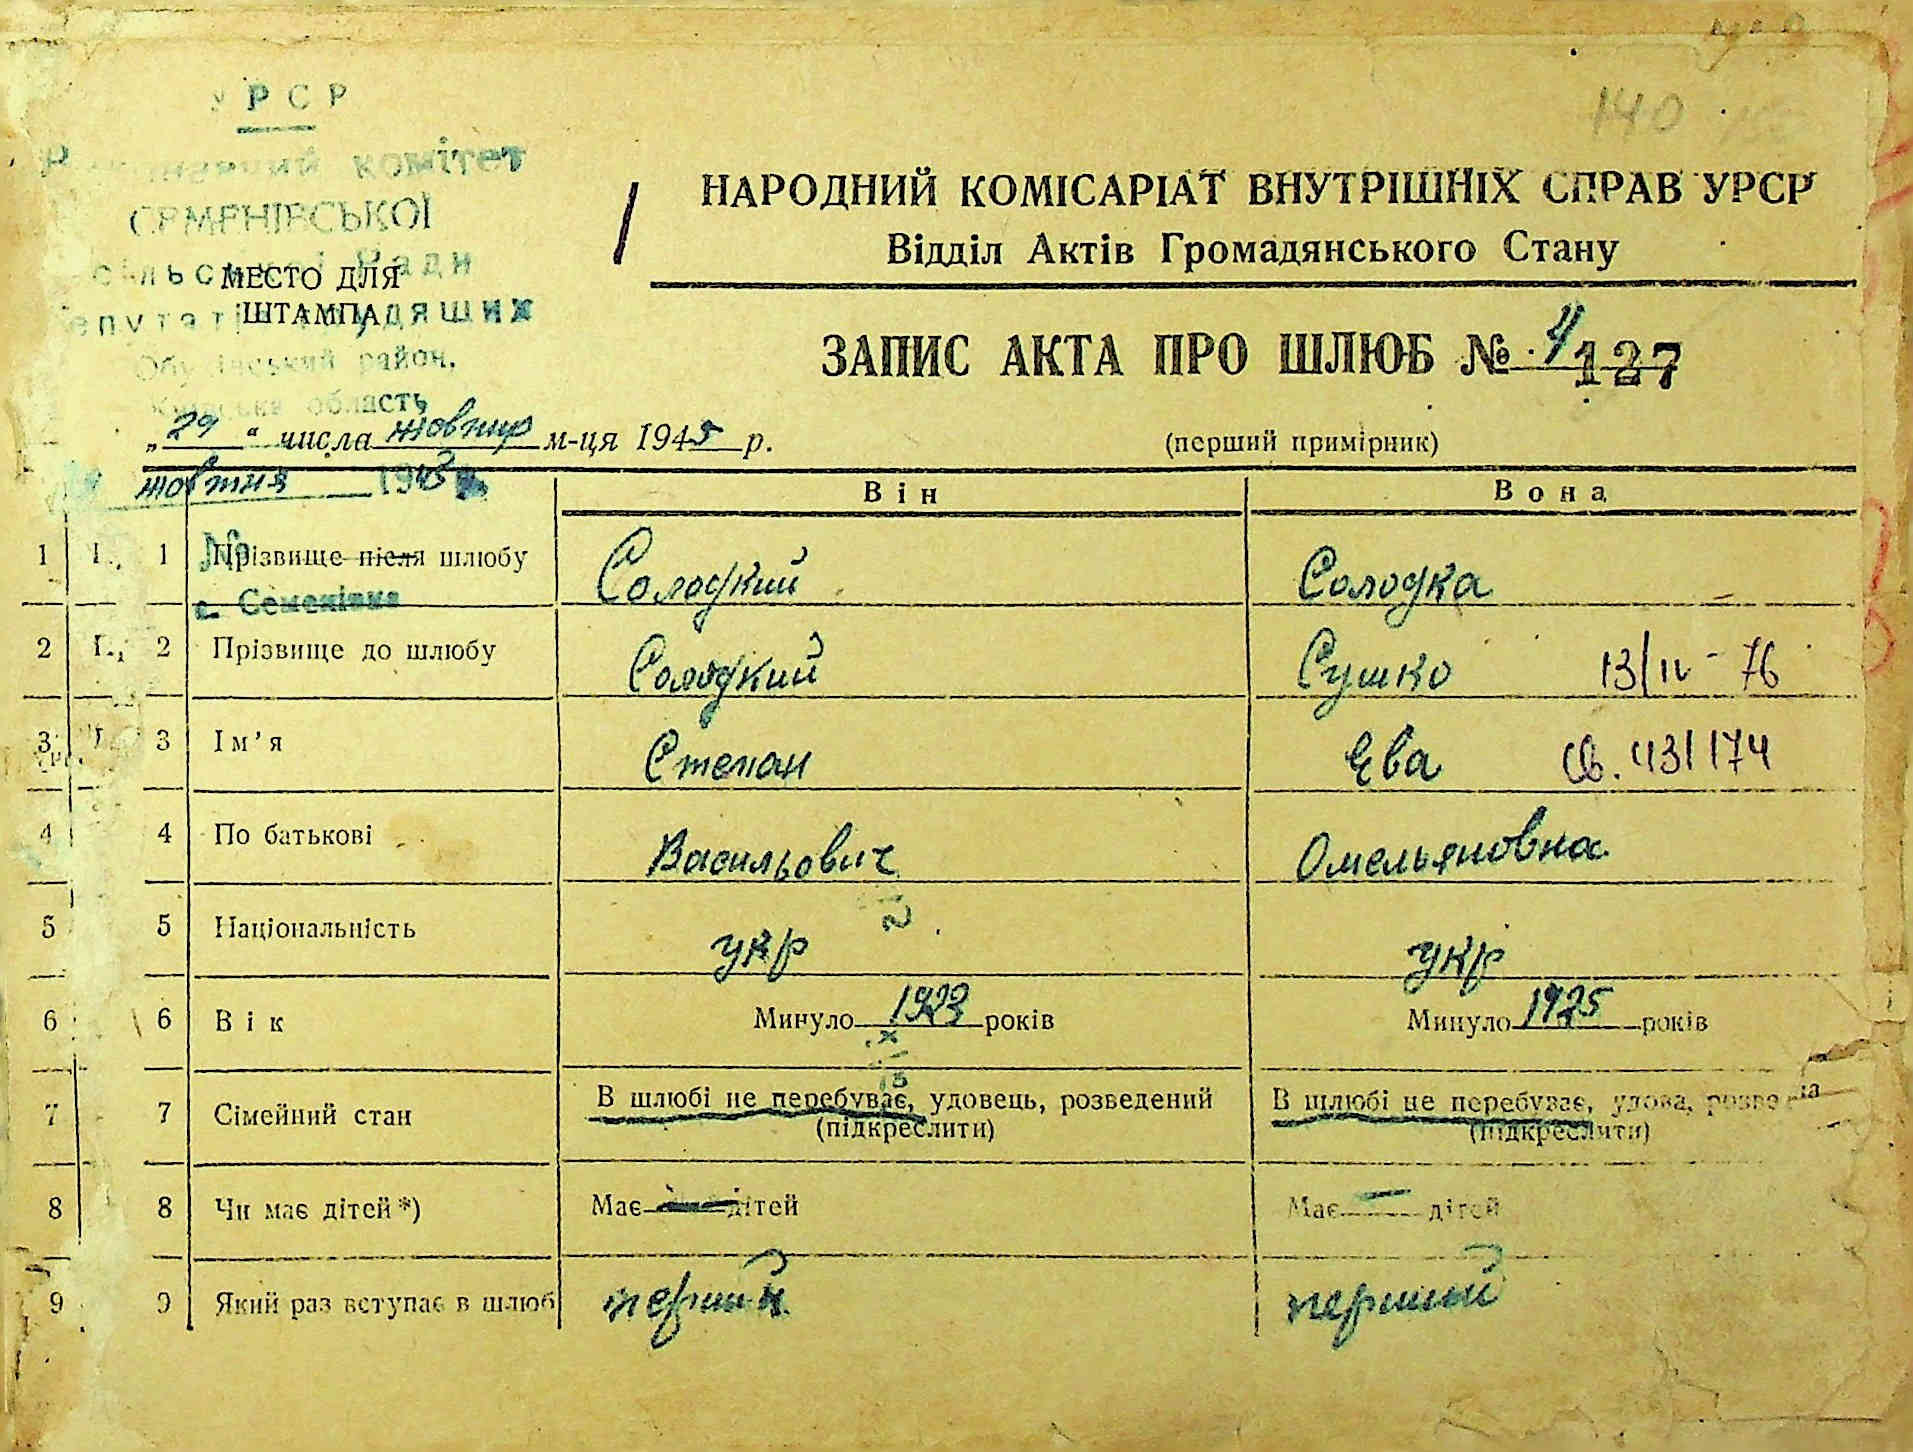 140
УРСР
комітет
СЕМЕНІВСЬКОЇ
Ради
МЕСТО ДЛЯ
ШТАМПА
район,
область
НАРОДНИЙ КОМІСАРІАТ ВНУТРІШНІХ СПРАВ УРСР
Відділ Актів Громадянського Стану
ЗАПИС АКТА ПРО ШЛЮБ № 4 127
„29“ числа жовтня м-ця 1945 р.
(перший примірник)
жовтня 194 р.
№
с. Семенівка
Він Вона
1 1 Прізвище після шлюбу Солодкий Солодка
2 2 Прізвище до шлюбу Солодкий Сушко 13/IV - 76
3 3 Ім’я Степан Ева св. 431174
4 4 По батькові Васильович Омельяновна
5 5 Національність укр укр
6 6 Вік Минуло 1923 років Минуло 1925 років
7 7 Сімейний стан В шлюбі не перебуває, удовець, розведений В шлюбі не перебуває, удова,
(підкреслити) (підкреслити)
8 8 Чи має дітей*) Має — дітей Має — дітей
9 9 Який раз вступає в шлюб перший перший